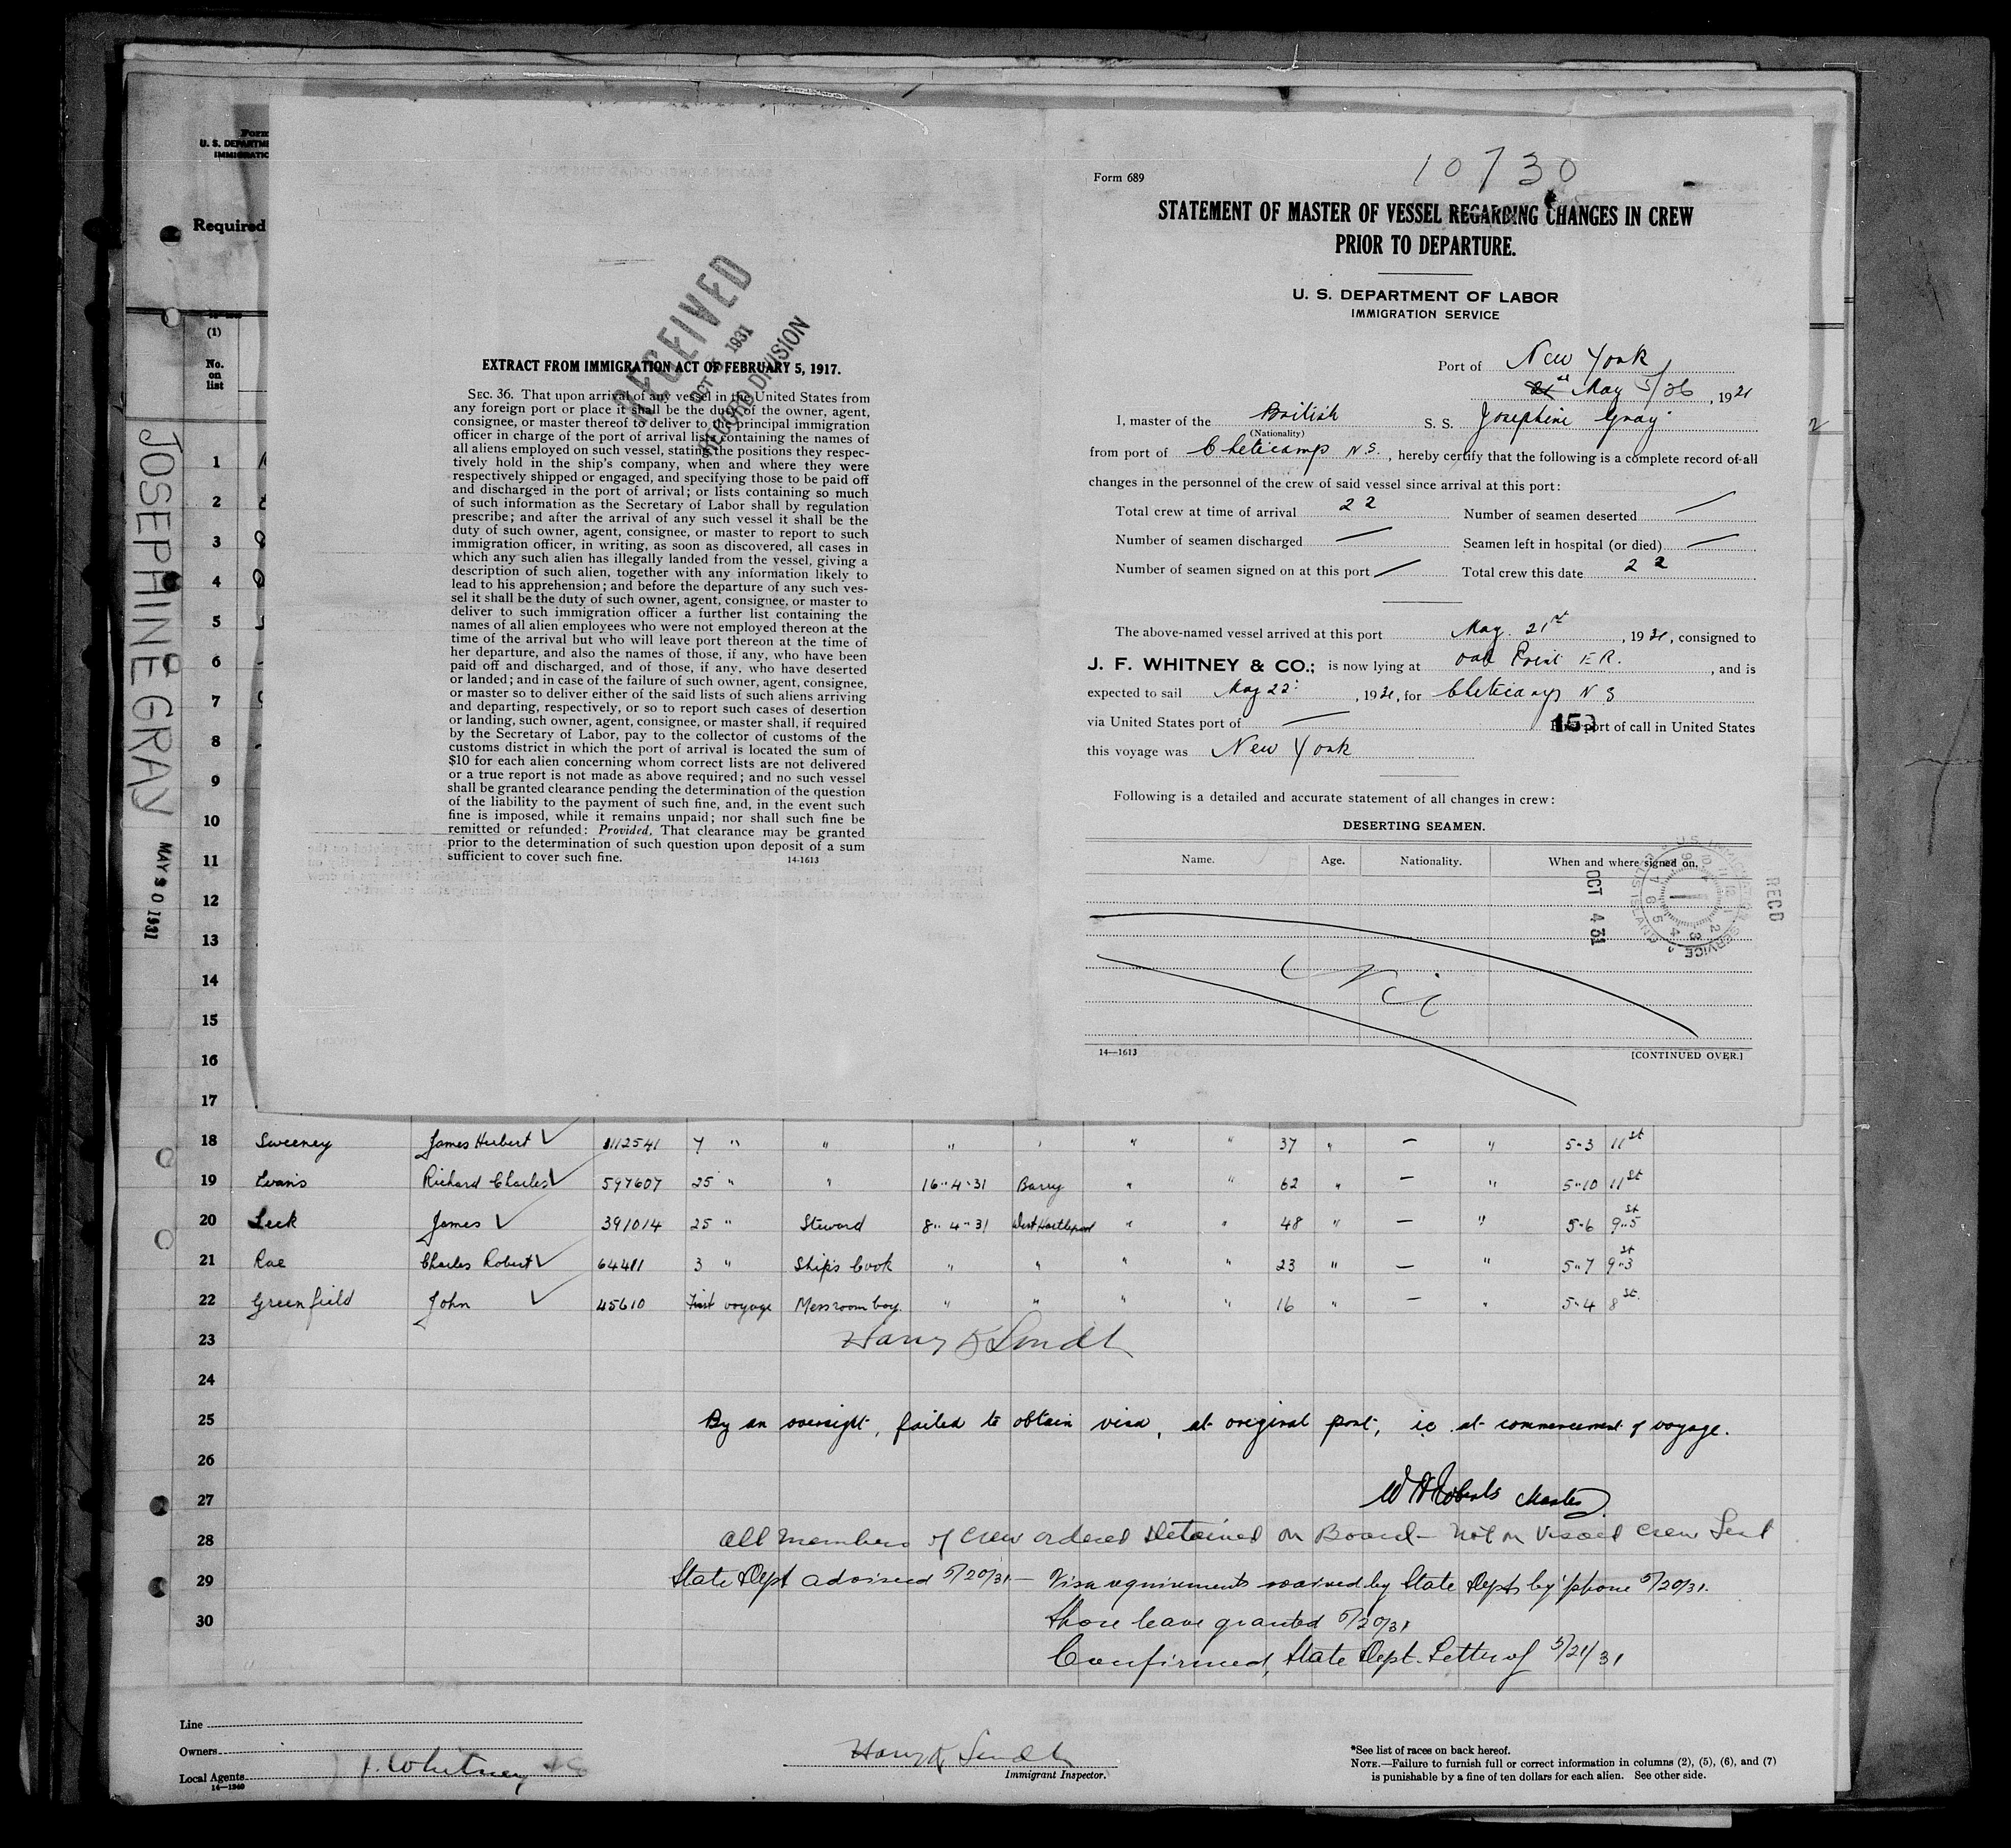 Form
U. S. DEPARTME
IMMIGRATIO
Required
(1)
No.
on
list
JOSEPHINE GRAY
MAY 20 1931
1
2
3
4
5
6
7
8
9
10
11
12
13
14
15
16
17
RECEIVED
OCT 1931
RECORD DIVISION
EXTRACT FROM IMMIGRATION ACT OF FEBRUARY 5, 1917.
SEC. 36. That upon arrival of any vessel in the United States from
any foreign port or place it shall be the duty of the owner, agent,
consignee, or master thereof to deliver to the principal immigration
officer in charge of the port of arrival lists containing the names of
all aliens employed on such vessel, stating the positions they respec-
tively hold in the ship's company, when and where they were
respectively shipped or engaged, and specifying those to be paid off
and discharged in the port of arrival; or lists containing so much
of such information as the Secretary of Labor shall by regulation
prescribe; and after the arrival of any such vessel it shall be the
duty of such owner, agent, consignee, or master to report to such
immigration officer, in writing, as soon as discovered, all cases in
which any such alien has illegally landed from the vessel, giving a
description of such alien, together with any information likely to
lead to his apprehension; and before the departure of any such ves-
sel it shall be the duty of such owner, agent, consignee, or master to
deliver to such immigration officer a further list containing the
names of all alien employees who were not employed thereon at the
time of the arrival but who will leave port thereon at the time of
her departure, and also the names of those, if any, who have been
paid off and discharged, and of those, if any, who have deserted
or landed; and in case of the failure of such owner, agent, consignee,
or master so to deliver either of the said lists of such aliens arriving
and departing, respectively, or so to report such cases of desertion
or landing, such owner, agent, consignee, or master shall, if required
by the Secretary of Labor, pay to the collector of customs of the
customs district in which the port of arrival is located the sum of
$10 for each alien concerning whom correct lists are not delivered
or a true report is not made as above required; and no such vessel
shall be granted clearance pending the determination of the question
of the liability to the payment of such fine, and, in the event such
fine is imposed, while it remains unpaid; nor shall such fine be
remitted or refunded: Provided, That clearance may be granted
prior to the determination of such question upon deposit of a sum
sufficient to cover such fine. 14-1613
10730
Form 689
STATEMENT OF MASTER OF VESSEL REGARDING CHANGES IN CREW
PRIOR TO DEPARTURE.
U. S. DEPARTMENT OF LABOR
IMMIGRATION SERVICE
Port of New York
21st May 5/26, 1931
I, master of the British S. S. Josephine Gray
(Nationality)
from port of Cheticamp N.S., hereby certify that the following is a complete record of all
changes in the personnel of the crew of said vessel since arrival at this port:
Total crew at time of arrival 22 Number of seamen deserted —
Number of seamen discharged — Seamen left in hospital (or died) —
Number of seamen signed on at this port — Total crew this date 22
The above-named vessel arrived at this port May 21st, 1931, consigned to
J. F. WHITNEY & CO.; is now lying at Oak Point E R., and is
expected to sail May 22, 1931, for Cheticamp N S
via United States port of — port of call in United States
this voyage was New York
Following is a detailed and accurate statement of all changes in crew:
DESERTING SEAMEN.
Name. Age. Nationality. When and where signed on.
OCT 4 31
RECD
14—1613 [CONTINUED OVER.]
18 Sweeney James Herbert ✓ 1112541 7 " " " " " " 37 " — " 5-3 11st
19 Evans Richard Charles ✓ 597607 25 " " 16-4-31 Barry " " 62 " — " 5-10 11st
20 Leck James ✓ 391014 25 " Steward 8-4-31 West Hartlepool " " 48 " — " 5-6 9st5
21 Rae Charles Robert ✓ 64411 3 " Ships Cook " " " " 23 " — " 5-7 9st3
22 Greenfield John ✓ 45610 First voyage Messroom boy " " " " 16 " — " 5-4 8st.
23
24
25 By an oversight, failed to obtain visa, at original port, ie at commencement of voyage.
26
27 W H Roberts Master
28 All members of crew ordered detained on Board - Not on Visaed crew List
29 State Dept advised 5/20/31 — Visa requirements waived by State Dept by 'phone 5/20/31.
30 Shore leave granted 5/20/31
Confirmed, State Dept. Letter of 5/21/31
Line
Owners
Local Agents J. Whitney & Co
14—1240
Immigrant Inspector.
*See list of races on back hereof.
NOTE.—Failure to furnish full or correct information in columns (2), (5), (6), and (7)
is punishable by a fine of ten dollars for each alien. See other side.